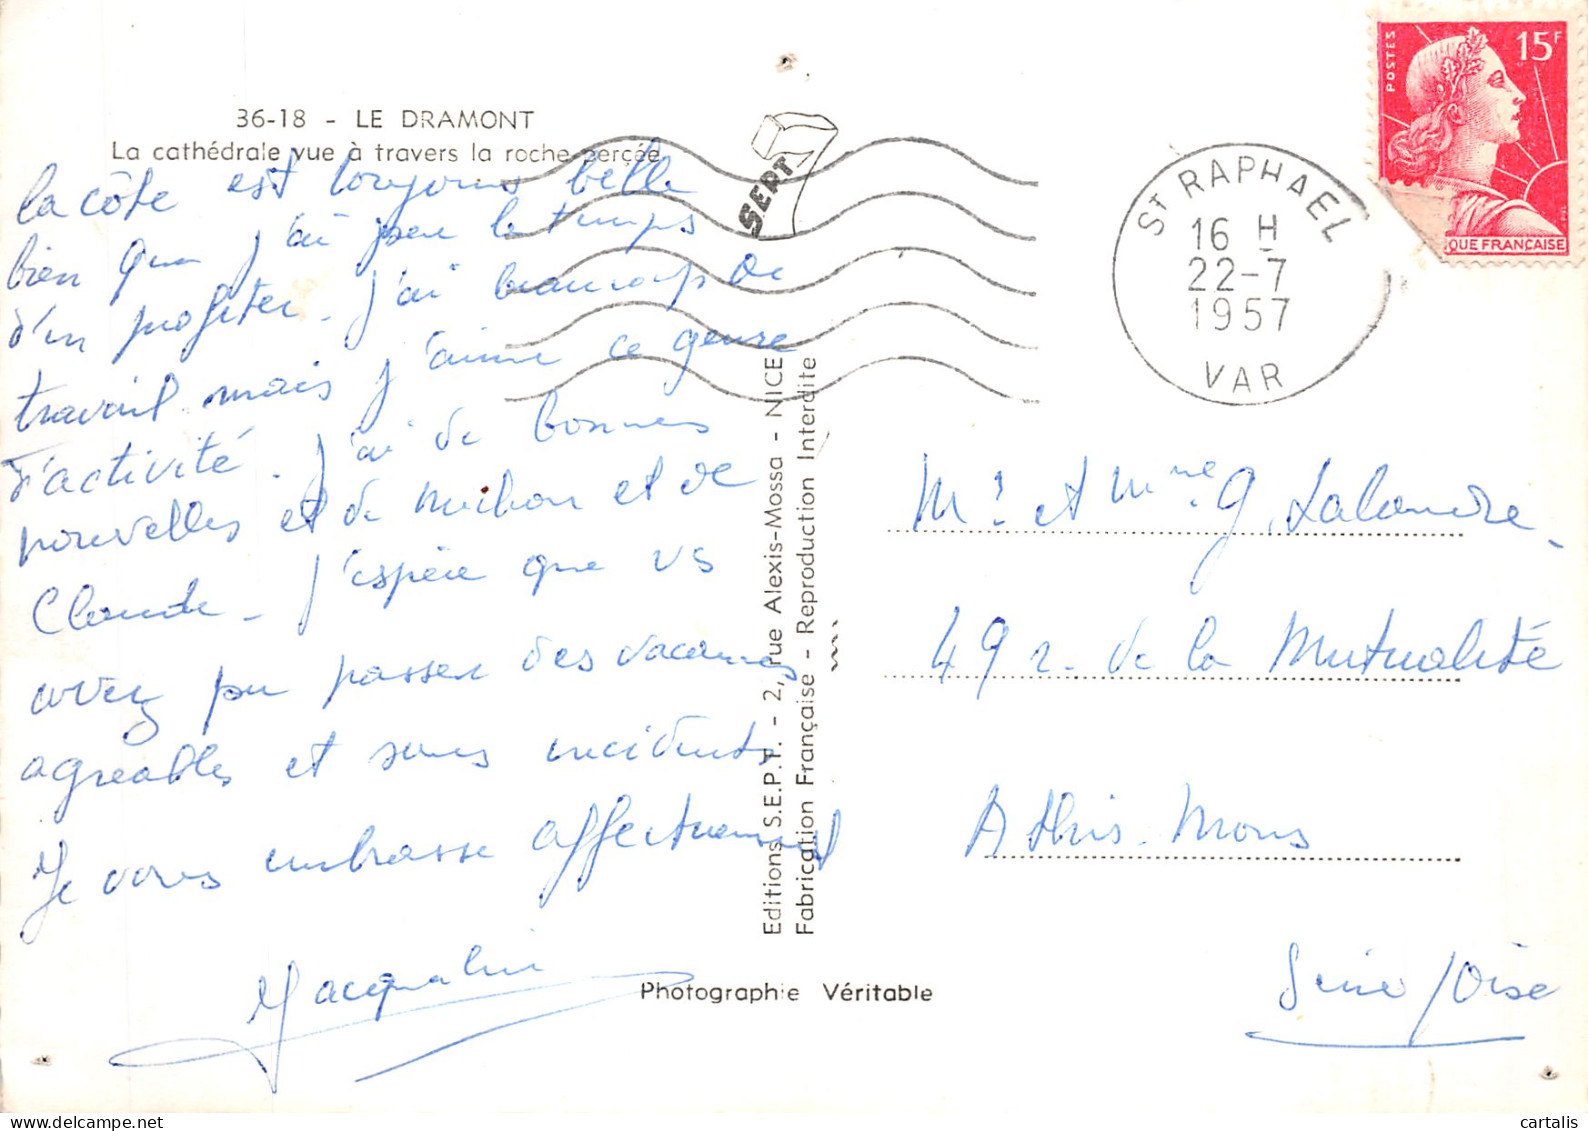 36-18 - LE DRAMONT
La cathédrale vue à travers la roche percée
la côte est toujours belle
bien que j'ai peu le temps
d'en profiter. J'ai beaucoup de
travail mais j'aime ce genre
d'activité. J'ai de bonnes
nouvelles et de et de
Claude. J'espère que vs
avez pu passer des vacances
agréables et sans incidents
Je vous embrasse affectueusement
Jacqueline
SEPT
Editions S.E.P.T. - 2, rue Alexis-Mossa - NICE
Fabrication Française - Reproduction Interdite
Photographie Véritable
POSTES
15F
QUE FRANÇAISE
St RAPHAEL
16 H
22-7
1957
VAR
Mr et Mme G. Lalandre
49 r. de la Mutualité
Athis-Mons
Seine/Oise
cartalis
delcampe.net